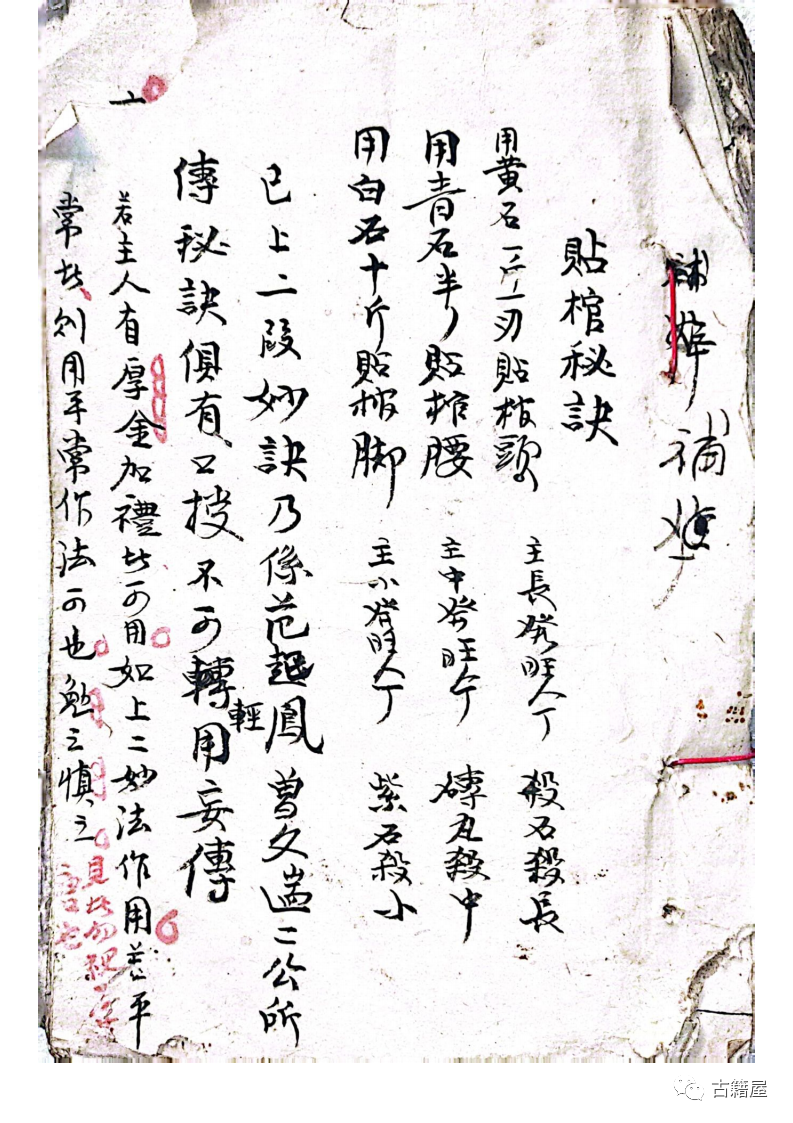 補
貼棺秘訣
用黄石一斤一刃貼棺頭 主長發旺人丁 殺石殺長
用青石半斤貼棺腰 主中發旺人丁 磚瓦殺中
用白石十斤貼棺脚 主小發旺人丁 紫石殺小
已上二段妙訣乃係范越鳳曾文遄二公所
傳秘訣俱有口授不可轉用妄傳
輕
一
若主人有厚金加禮此可用如上二妙法作用若平
常此則用平常作法可也勉之慎之
見此勿
古籍屋